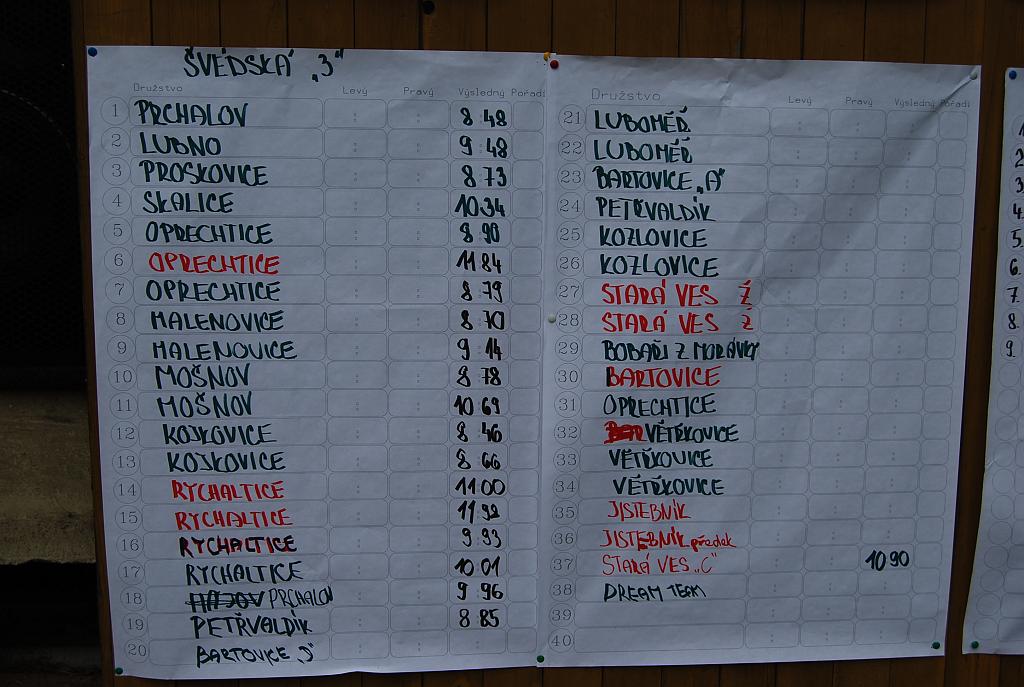 ŠVÉDSKÁ „3“
Družstvo Levý Pravý Výsledný Pořadí
1 PRCHALOV 8 48
2 LUBNO 9 48
3 PROSKOVICE 8 73
4 SKALICE 10 34
5 OPRECHTICE 8 90
6 OPRECHTICE 11 84
7 OPRECHTICE 8 79
8 MALENOVICE 8 70
9 MALENOVICE 9 14
10 MOŠNOV 8 78
11 MOŠNOV 10 69
12 KOJKOVICE 8 46
13 KOJKOVICE 8 66
14 RYCHALTICE 11 00
15 RYCHALTICE 11 92
16 RYCHALTICE 9 93
17 RYCHALTICE 10 01
18 HÁJOV PRCHALOV 9 96
19 PETŘVALDÍK 8 85
20 BARTOVICE
Družstvo Levý Pravý Výsledný Pořadí
21 LUBOMĚŘ
22 LUBOMĚŘ
23 BARTOVICE „A“
24 PETŘVALDÍK
25 KOZLOVICE
26 KOZLOVICE
27 STARÁ VES Ž
28 STARÁ VES Ž
29 BOBAŘI Z MORÁVKY
30 BARTOVICE
31 OPRECHTICE
32 BAR VĚTŘKOVICE
33 VĚTŘKOVICE
34 VĚTŘKOVICE
35 JISTEBNÍK
36 JISTEBNÍK předek
37 STARÁ VES „C“ 10 90
38 DREAM TEAM
39
40
2.
3.
4.
5.
6.
7.
8.
9.